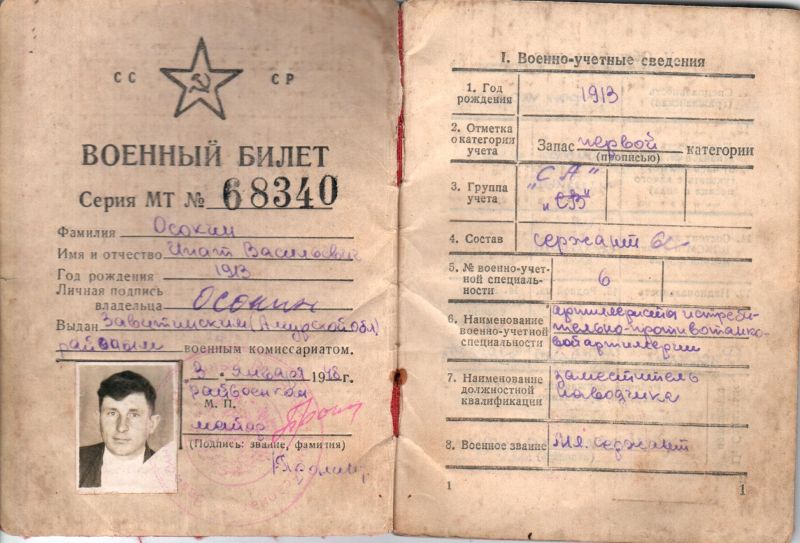 СС СР
ВОЕННЫЙ БИЛЕТ
Серия МТ № 68340
Фамилия Осокин
Имя и отчество Игнат Васильевич
Год рождения 1913
Личная подпись
владельца Осокин
Выдан Завитинским (Амурской обл)
райвоен военным комиссариатом.
3 января 1948г.
райвоенком
М. П.
майор
(Подпись: звание, фамилия)
I. Военно-учетные сведения
1. Год
рождения
1913
2. Отметка
о категории
учета
Запас первой категории
(прописью)
3. Группа
учета
"СА"
"СВ"
4. Состав
сержант
5. № военно-учет-
ной специаль-
ности
6
6. Наименование
военно-учетной
специальности
артиллериста истреби-
тельно-противотанко-
вой артиллерии
7. Наименование
должностной
квалификации
заместитель
наводчика
8. Военное звание Мл. сержант
1
1